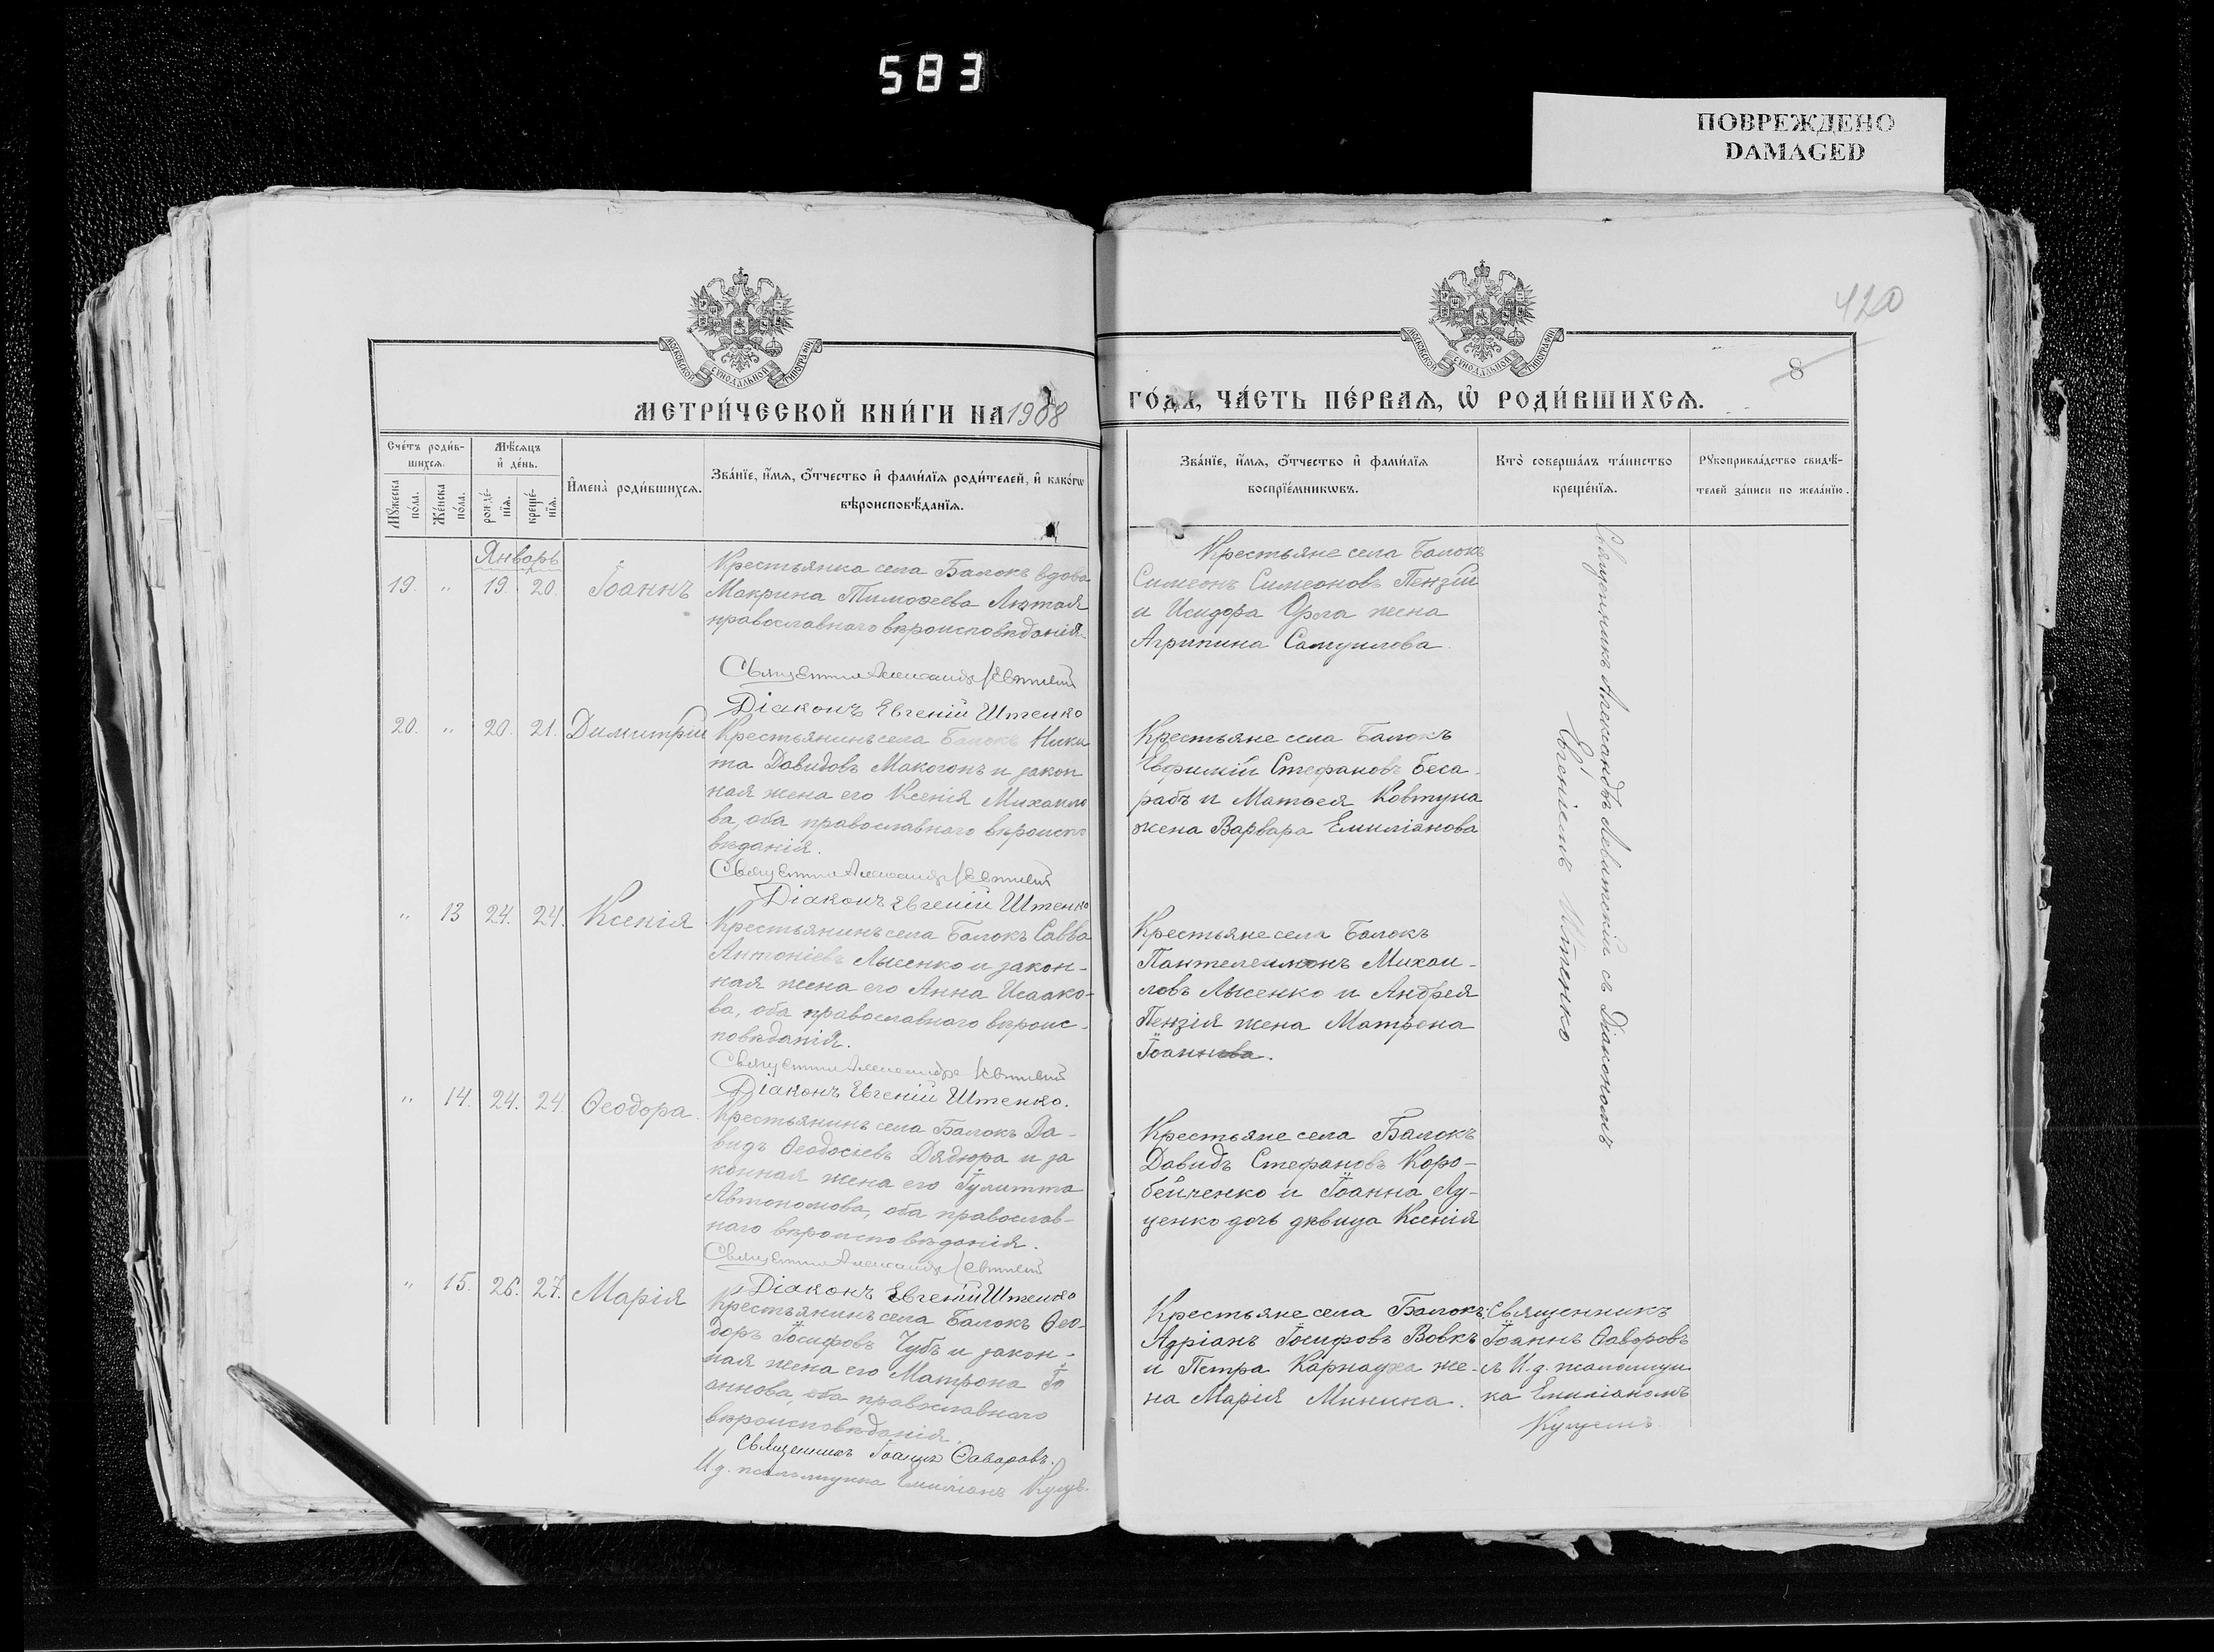 583
ПОВРЕЖДЕНО
DAMAGED
420
8
МОСКОВСКОЙ СѴНОДАЛЬНОЙ ТИПОГРАФІИ
МОСКОВСКОЙ СѴНОДАЛЬНОЙ ТИПОГРАФІИ
МЕТРИ́ЧЕСКОЙ КНИ́ГИ НА 1908
ГО́ДА, ЧА́СТЬ ПЕ́РВАѦ, Ѡ҆ РОДИ́ВШИХСѦ.
Сче́тъ роди́в-
шихсѧ.
Мꙋ́жеска по́ла.
Же́нска по́ла.
Мѣ́сѧцъ
и҆ де́нь.
рожде́-
нїѧ.
креще́-
нїѧ.
И҆мена̀ роди́вшихсѧ.
Зва́нїе, и҆́мѧ, ѻ҆́тчество и҆ фами́лїѧ роди́телей, и҆ како́гѡ
вѣроисповѣ́данїѧ.
Зва́нїе, и҆́мѧ, ѻ҆́тчество и҆ фами́лїѧ
воспрїе́мникѡвъ.
Кто̀ соверша́лъ та́инство
креще́нїѧ.
Рꙋкоприкла́дство свидѣ́-
телей за́писи по жела́нїю.
Январь
19. " 19. 20. Іоаннъ
Крестьянка села Балокъ вдова
Макрина Тимоѳеева Лютая
православнаго вѣроисповѣданія.
Священникъ Александръ Левитскій
Діаконъ Евгеній Штенко
Крестьяне села Балокъ
Симеонъ Симеоновъ Пензій
и Исидора Орла жена
Агрипина Самуилова.
20. " 20. 21. Димитрій
Крестьянинъ села Балокъ Ники
та Давидовъ Макогонъ и закон
ная жена его Ксенія Михаило
ва, оба православнаго вѣроиспо
вѣданія.
Священникъ Александръ Левитскій
Діаконъ Евгеній Штенко
Крестьяне села Балокъ
Евфимій Стефановъ Беса-
рабъ и Матѳея Ковтуна
жена Варвара Емиліанова
" 13 24. 24. Ксенія
Крестьянинъ села Балокъ Савва
Антоніевъ Лысенко и закон-
ная жена его Анна Исаако-
ва, оба православнаго вѣроис-
повѣданія.
Священникъ Александръ Левитскій
Діаконъ Евгеній Штенко.
Крестьяне села Балокъ
Пантелеимонъ Михаи-
ловъ Лысенко и Андрея
Пензія жена Матрона
Іоаннова.
" 14. 24. 24. Ѳеодора.
Крестьянинъ села Балокъ Да-
видъ Ѳеодосіевъ Дядюра и за
конная жена его Іулитта
Автономова, оба православ-
наго вѣроисповѣданія.
Священникъ Александръ Левитскій
Діаконъ Евгеній Штенко
Крестьяне села Балокъ
Давидъ Стефановъ Коро-
бейченко и Іоанна Лу-
ценко дочь дѣвица Ксенія
" 15. 26. 27. Марія
Крестьянинъ села Балокъ Ѳео-
доръ Іосифовъ Чубъ и закон-
ная жена его Матрона Іо
аннова, оба православнаго
вѣроисповѣданія.
Священникъ Іоаннъ Ѳаворовъ.
И.д. псаломщика Емиліанъ Куцъ.
Крестьяне села Балокъ
Адріанъ Іосифовъ Вовкъ
и Петра Карнауха же-
на Марія Минина.
Священникъ Александръ Левитскій съ Діакономъ
Евгеніемъ Штенко
Священникъ
Іоаннъ Ѳаворовъ
съ И.д. псаломщи
ка Емиліаномъ
Куцемъ